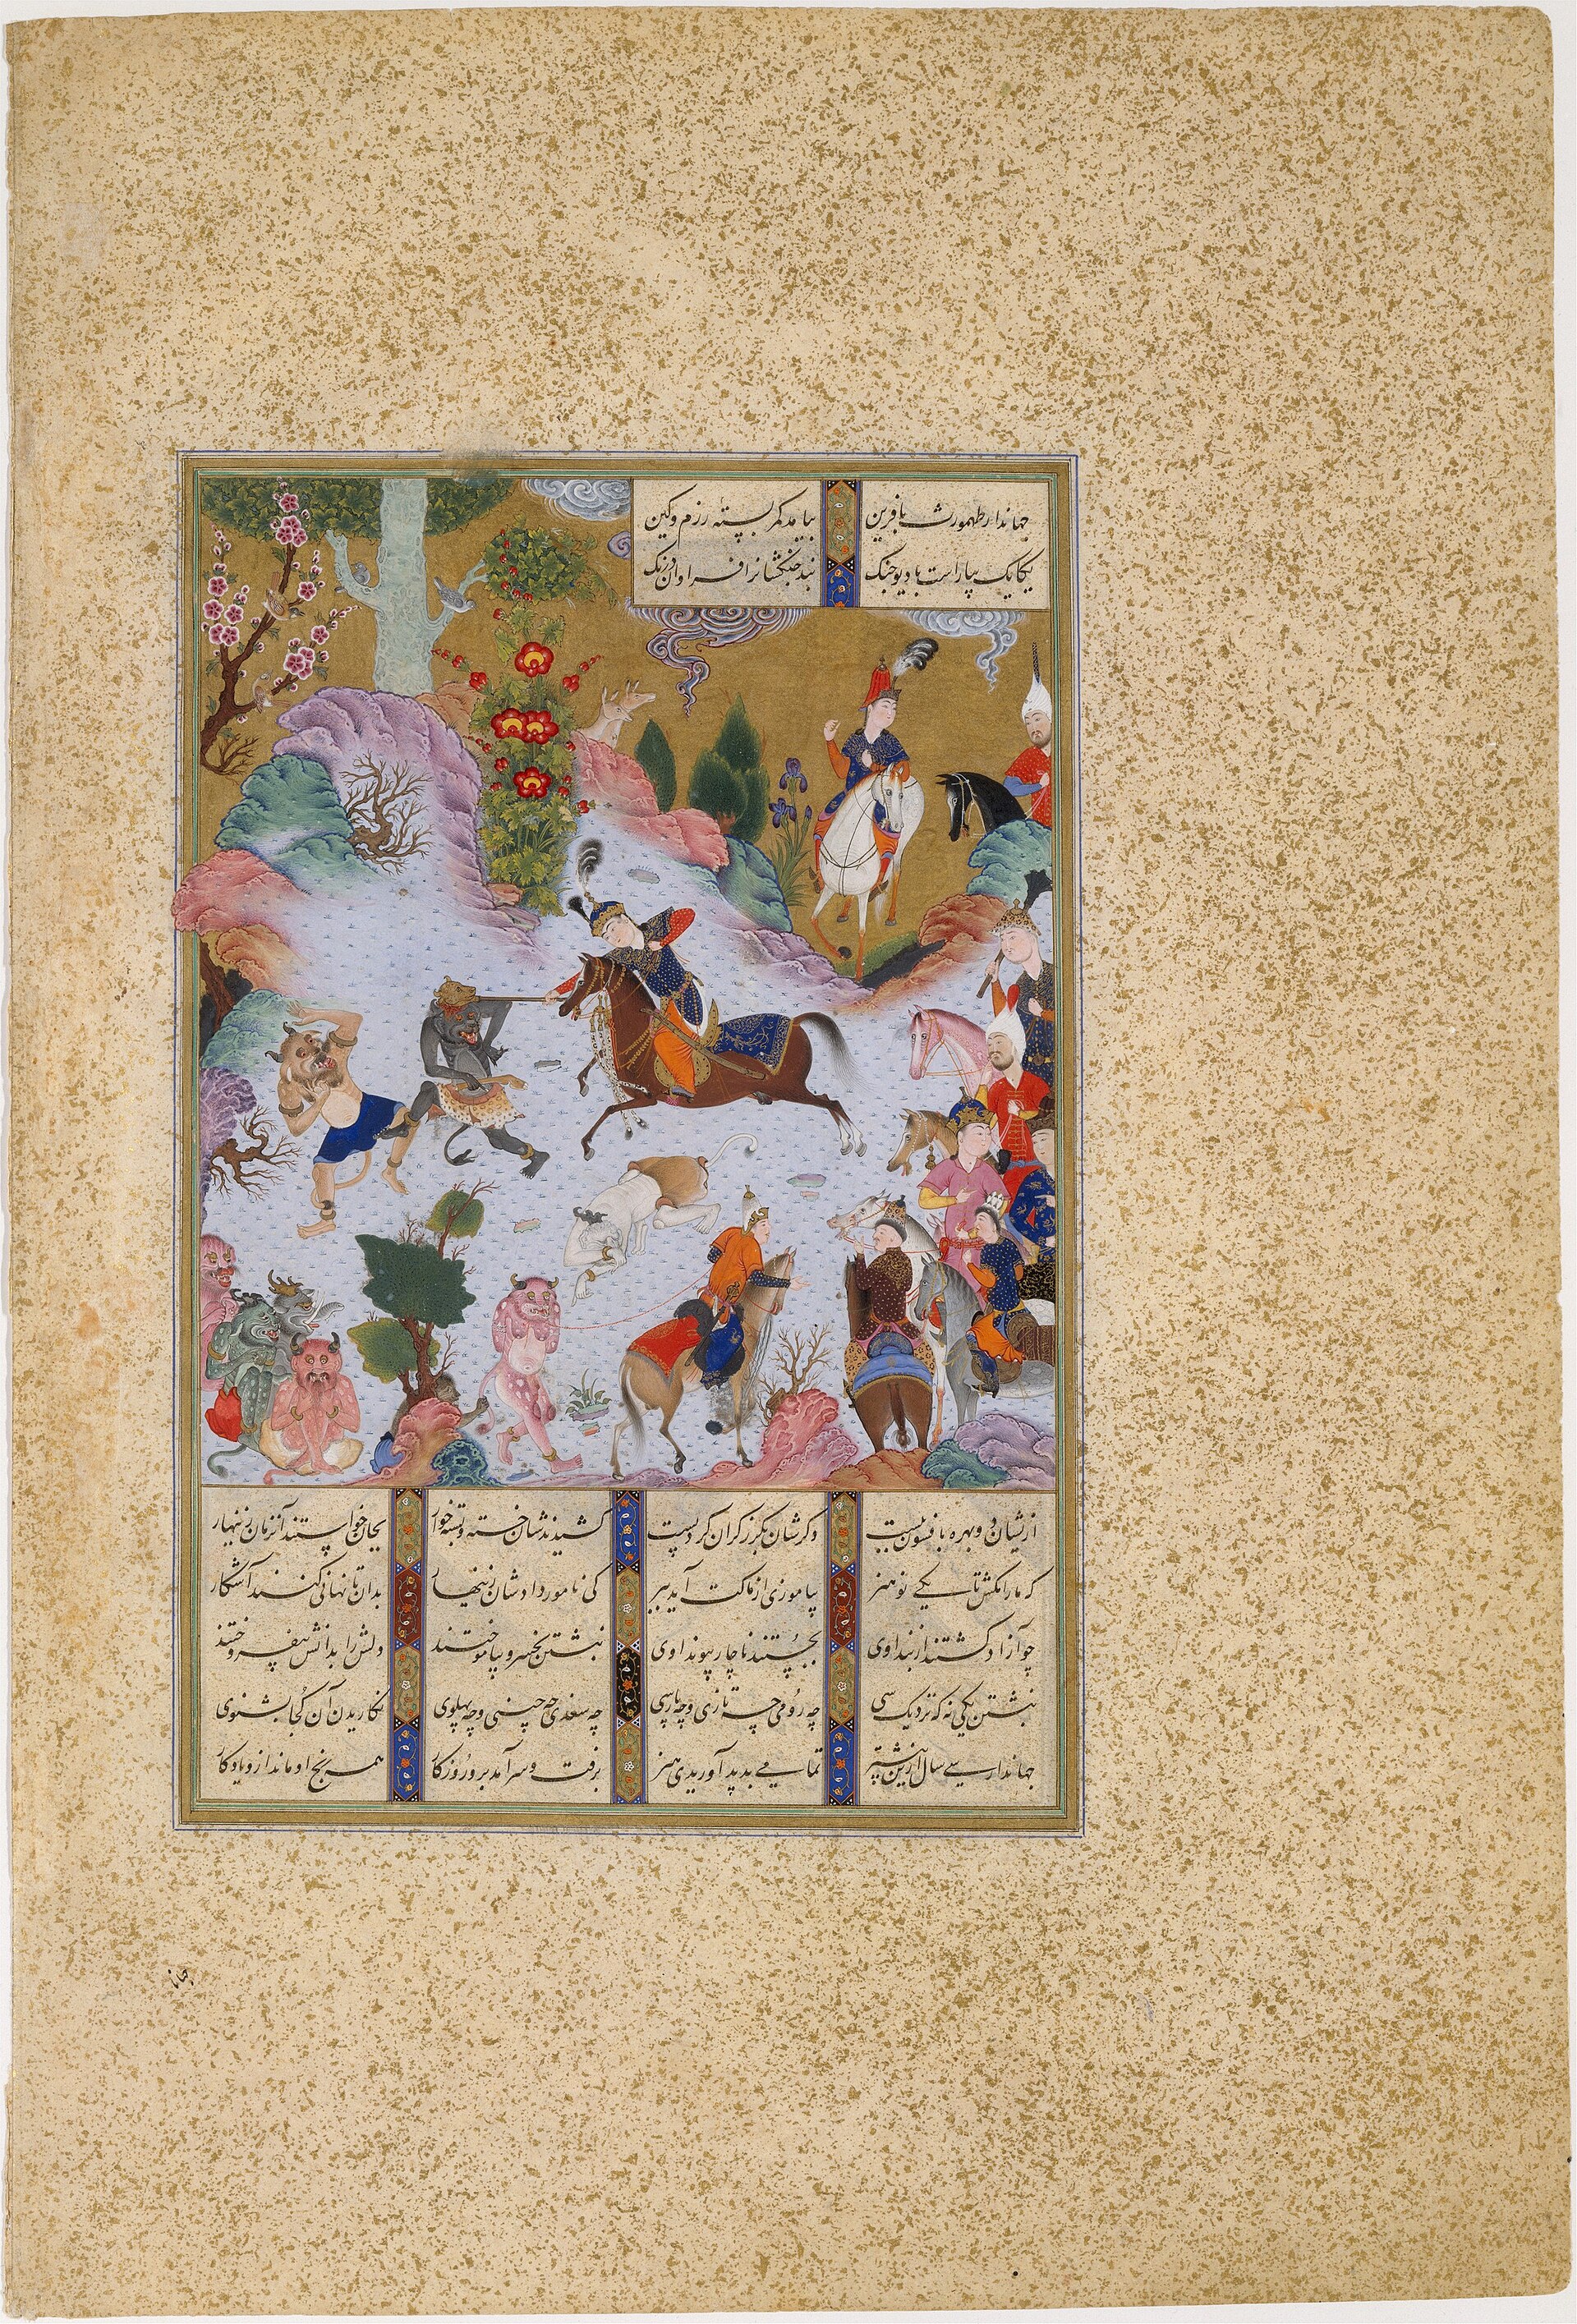 جهاندار طهمورث بافرین بیامد کمر بسته رزم و کین
یکایک بیاراست با دیو جنک نبد جنکشانرا فراوان درنک
ازیشان دو بهره بافسون ببست دکرشان بکرز کران کرد پست کشیدندشان خسته و بسته خوار بجان خواستند آنزمان زینهار
که ما را مکش تا یکی نو هنر بیاموزی از ماکت آید ببر کی نامور دادشان زینهار بدان تا نهانی کنند آشکار
چو آزاد کشتند از بند اوی بجستند ناچار پیوند اوی نبشتن بخسرو بیاموختند دلش را بدانش بیفروختند
نبشتن یکی نه که نزدیک سی چه رومی چه تازی و چه پارسی چه سغدی چه چینی و چه پهلوی نکاریدن آن کجا بشنوی
جهاندار سی سال ازین بیشتر پدید آوریدی هنر برفت و سرآمد برو روزکار همه رنج او ماند ازو یادکار
جهانا